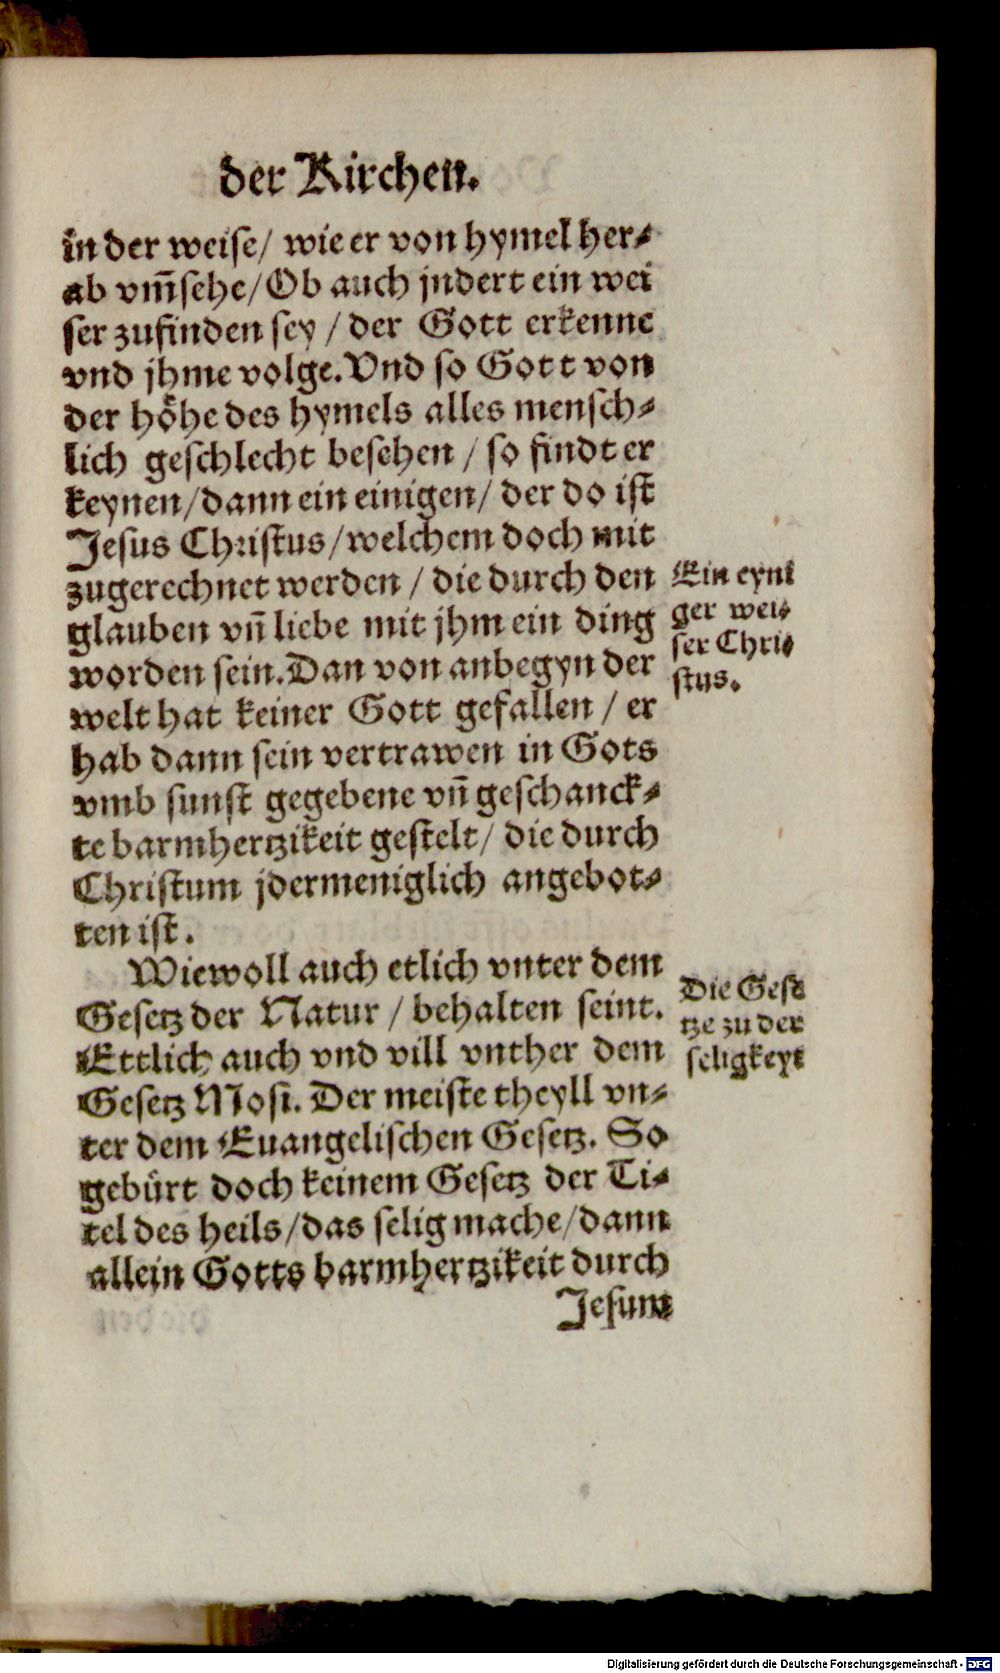 der Kirchen.
in der weise/ wie er von hymel her⸗
ab vm̃sehe/ Ob auch jndert ein wei
ser zufinden sey / der Gott erkenne
vnd jhme volge. Vnd so Gott von
der hoͤhe des hymels alles mensch⸗
lich geschlecht besehen / so findt er
keynen/ dann ein einigen/ der do ist
Jesus Christus/ welchem doch mit
zugerechnet werden / die durch den
glauben vñ liebe mit jhm ein ding
worden sein. Dan von anbegyn der
welt hat keiner Gott gefallen / er
hab dann sein vertrawen in Gots
vmb sunst gegebene vñ geschanck⸗
te barmhertzikeit gestelt/ die durch
Christum jdermeniglich angebot⸗
ten ist.
Ein eyni
ger wei⸗
ser Chri⸗
stus.
Wiewoll auch etlich vnter dem
Gesetz der Natur / behalten seint.
Ettlich auch vnd vill vnther dem
Gesetz Mosi. Der meiste theyll vn⸗
ter dem Euangelischen Gesetz. So
gebürt doch keinem Gesetz der Ti⸗
tel des heils/ das selig mache/ dann
allein Gotts barmhertzikeit durch
Jesum
Die Gese
tze zu der
seligkeyt
Digitalisierung gefördert durch die Deutsche Forschungsgemeinschaft - DFG